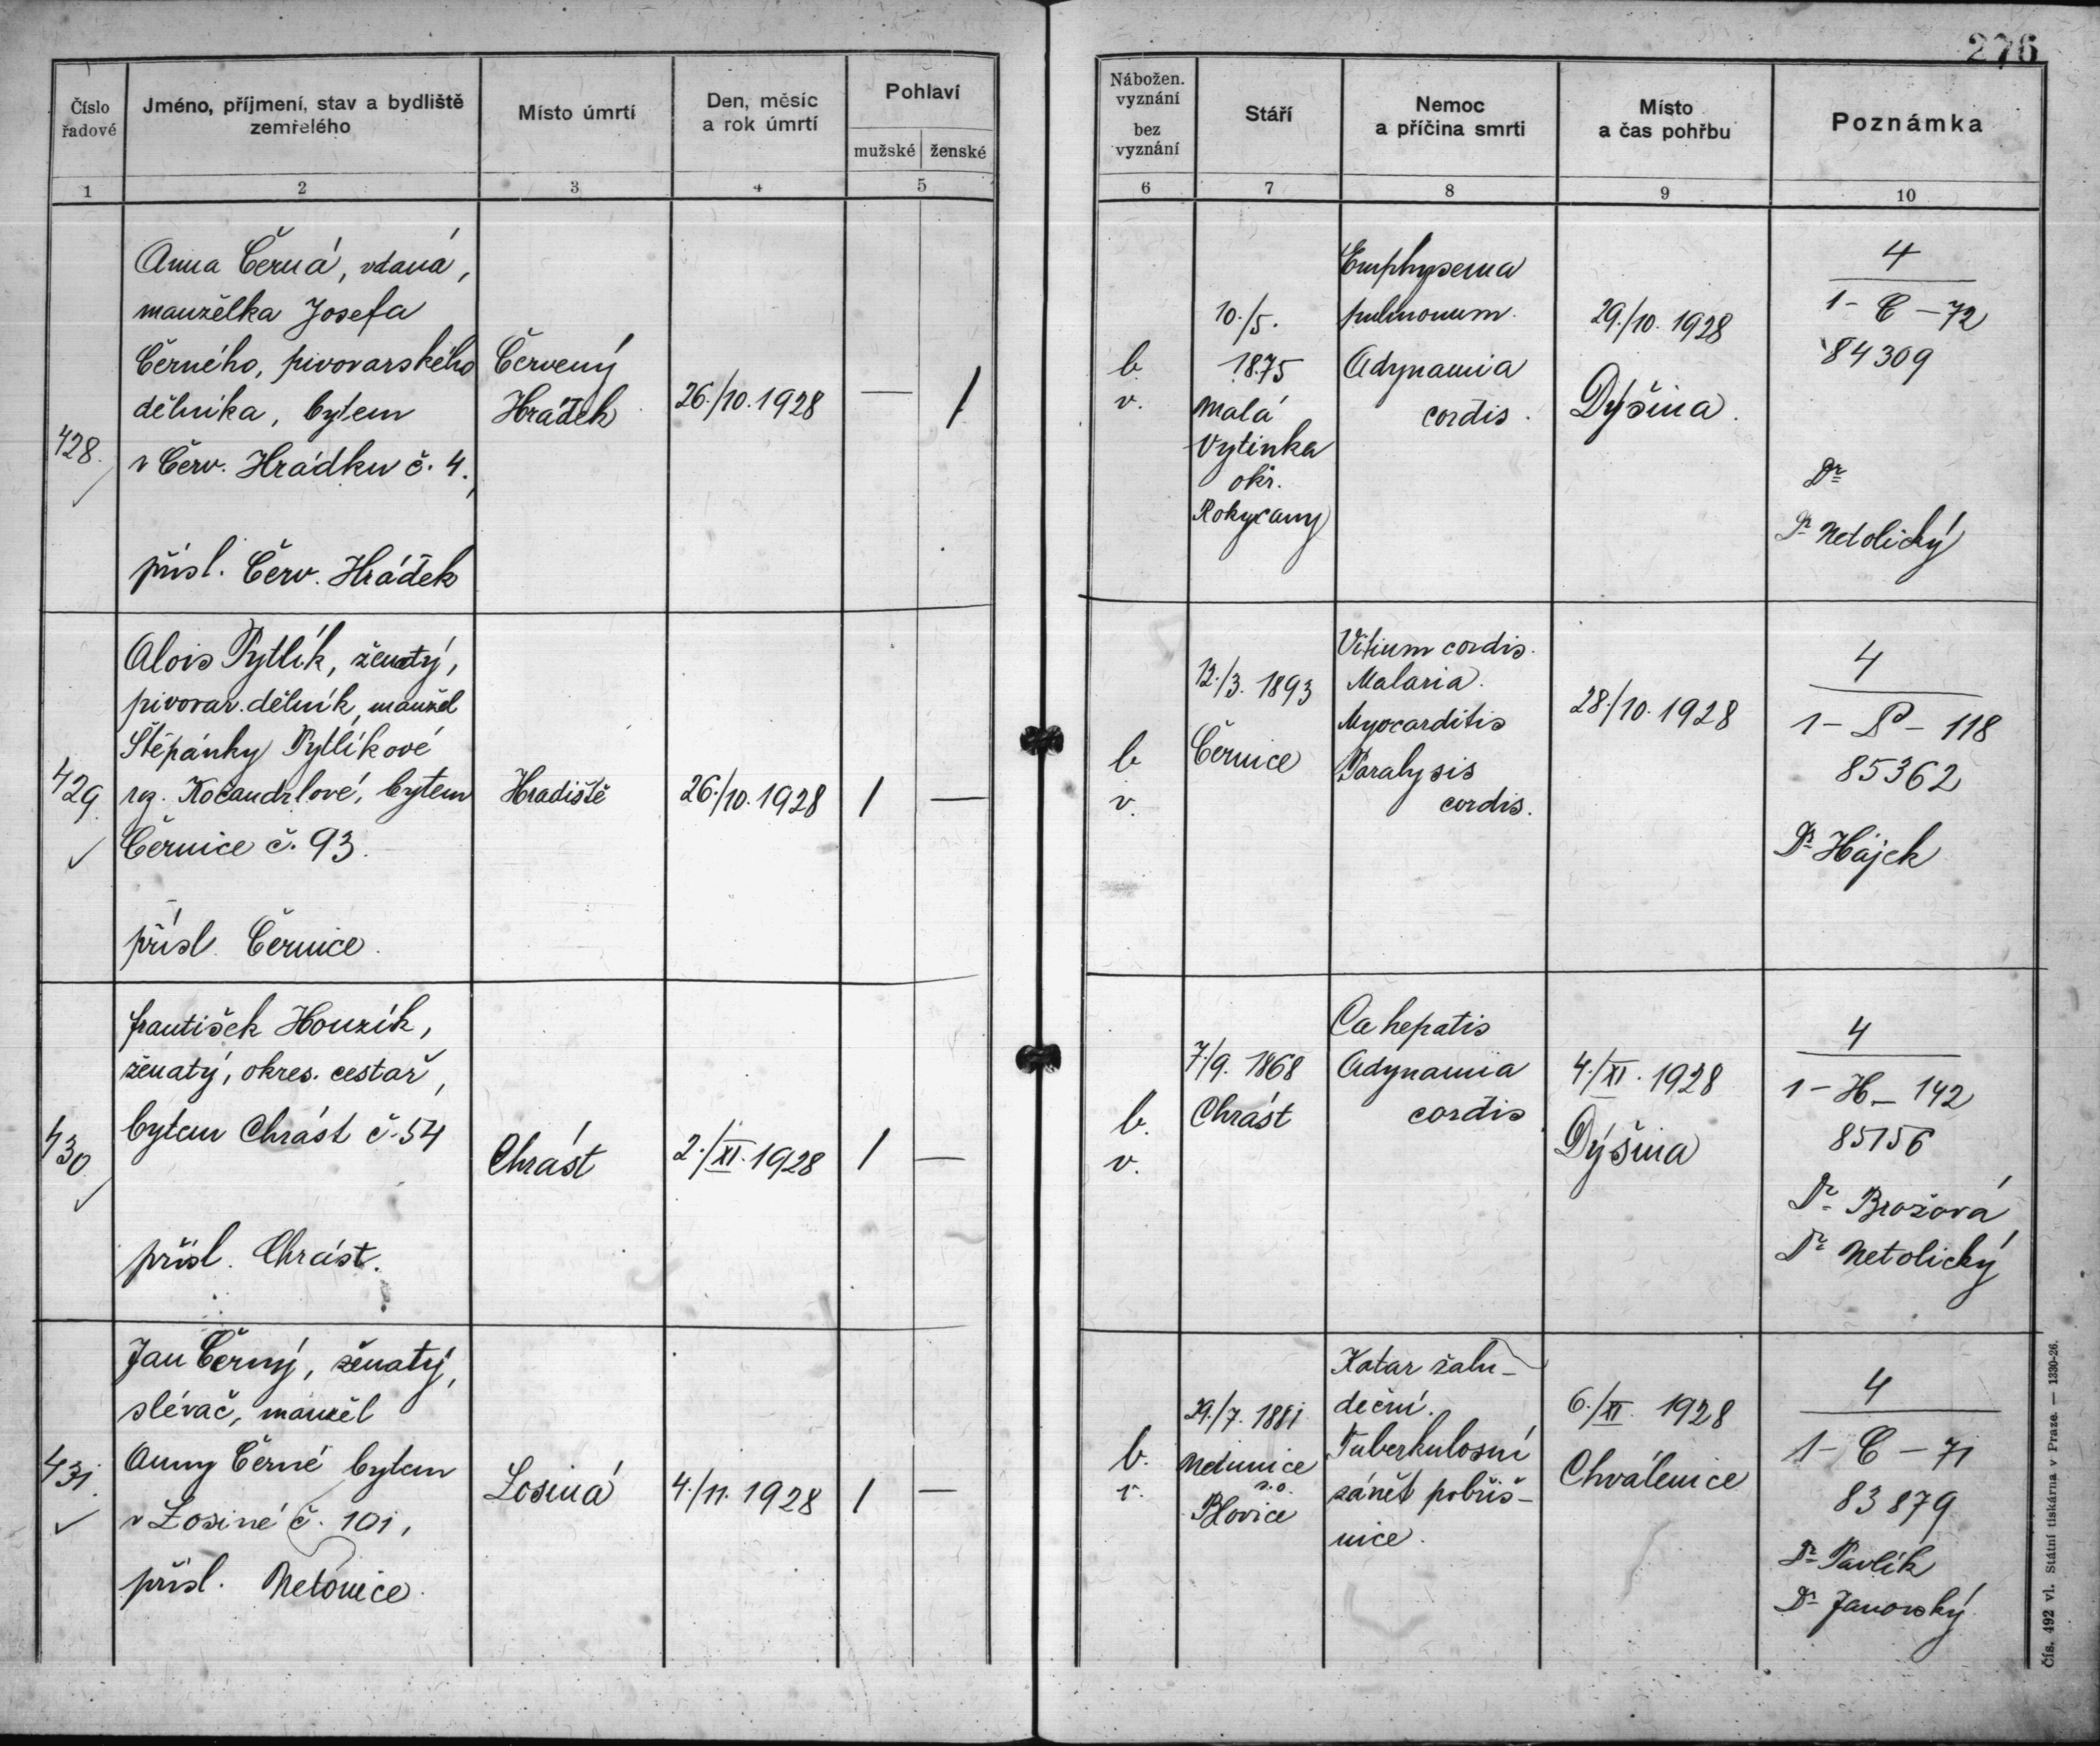 276
Číslo
řadové
Jméno, příjmení, stav a bydliště
zemřelého
Místo úmrtí
Den, měsíc
a rok úmrtí
Pohlaví
mužské
ženské
Nábožen.
vyznání
bez
vyznání
Stáří
Nemoc
a příčina smrti
Místo
a čas pohřbu
Poznámka
1
2
3
4
5
6
7
8
9
10
428.
Anna Černá, vdaná,
manželka Josefa
Černého, pivovarského
dělníka, bytem
v Červ. Hrádku č. 4.,
přísl. Červ. Hrádek
Červený
Hrádek
26./10. 1928
—
1
b.
v.
10./5.
1875
Malá
Vytinka
okr.
Rokycany
Emphysema
pulmonum.
Adynamia
cordis.
29./10. 1928
Dýšina.
4
1 - C - 72
84309
Dr
Dr Netolický
429.
Alois Pytlík, ženatý,
pivovar. dělník, manžel
Štěpánky Pytlíkové
roz. Kočandrlové, bytem
Černice č. 93.
přísl. Černice.
Hradiště
26./10. 1928
1
—
b.
v.
12./3. 1893
Černice
Vitium cordis.
Malaria.
Myocarditis
Paralysis
cordis.
28./10. 1928
4
1 - P - 118
85362
Dr Hájek
430.
František Houzík,
ženatý, okres. cestář,
bytem Chrást č. 54
přísl. Chrást.
Chrást
2./XI. 1928
1
—
b.
v.
7./9. 1868
Chrást
Ca hepatis
Adynamia
cordis
4./XI. 1928
Dýšina
4
1 - H - 142
85156
Dr Brožová
Dr Netolický
431.
Jan Černý, ženatý,
slévač, manžel
Anny Černé bytem
v Losiné č. 101,
přísl. Netonice.
Losiná
4./11. 1928
1
—
b.
v.
29./7. 1881
s.o.
Blovice
Katar žalu-
deční.
Tuberkulosní
zánět pobřiš-
nice.
6./XI. 1928
Chválenice
4
1 - C - 71
83879
Dr Pavlík
Dr Janovský
Čís. 492 vl. Státní tiskárna v Praze. — 1330-26.